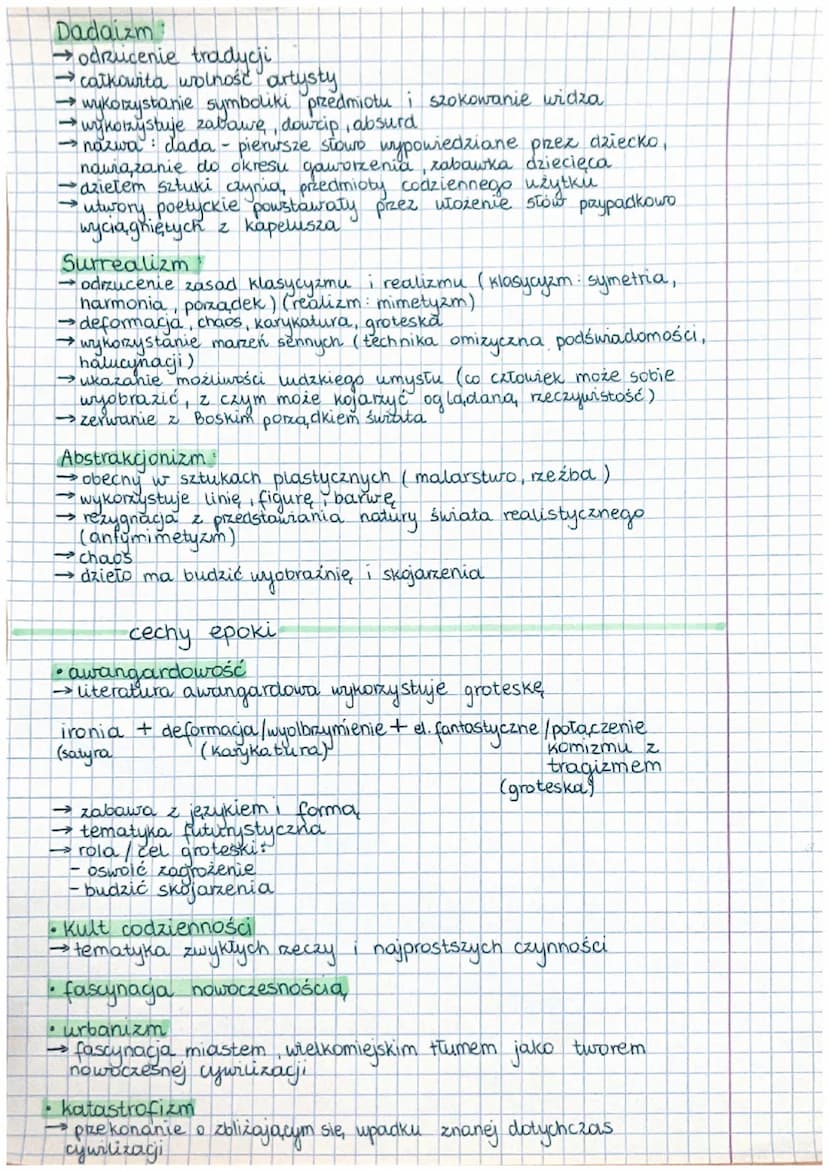 Dadaizm:
→ odrzucenie tradycji
→ całkowita wolność artysty
→ wykorzystanie symboliki przedmiotu i szokowanie widza
→ wykorzystuje zabawę, dowcip, absurd
→ nazwa: dada - pierwsze słowo wypowiedziane przez dziecko,
nawiązanie do okresu gaworzenia, zabawka dziecięca
→ dziełem sztuki czynią przedmioty codziennego użytku
→ utwory poetyckie powstawały przez ułożenie słów przypadkowo
wyciągniętych z kapelusza
Surrealizm:
→ odrzucenie zasad klasycyzmu i realizmu (klasycyzm: symetria,
harmonia, porządek) (realizm: mimetyzm)
→ deformacja, chaos, karykatura, groteska
→ wykorzystanie marzeń sennych (technika omizyczna podświadomości,
halucynacji)
→ ukazanie możliwości ludzkiego umysłu (co człowiek może sobie
wyobrazić, z czym może kojarzyć oglądaną rzeczywistość)
→ zerwanie z Boskim porządkiem świata
Abstrakcjonizm:
→ obecny w sztukach plastycznych (malarstwo, rzeźba)
→ wykorzystuje linię, figurę, barwę
→ rezygnacja z przedstawiania natury świata realistycznego
(antymimetyzm)
→ chaos
→ dzieło ma budzić wyobraźnię i skojarzenia
cechy epoki
• awangardowość
→ literatura awangardowa wykorzystuje groteskę
ironia + deformacja/wyolbrzymienie + el. fantastyczne/połączenie
(satyra (karykatura) komizmu z
tragizmem
(groteska)
→ zabawa z językiem i formą
→ tematyka futurystyczna
→ rola/cel groteski:
- oswoić zagrożenie
- budzić skojarzenia
• kult codzienności
→ tematyka zwykłych rzeczy i najprostszych czynności
• fascynacja nowoczesnością
• urbanizm
→ fascynacja miastem, wielkomiejskim tłumem jako tworem
nowoczesnej cywilizacji
• katastrofizm
→ przekonanie o zbliżającym się upadku znanej dotychczas
cywilizacji